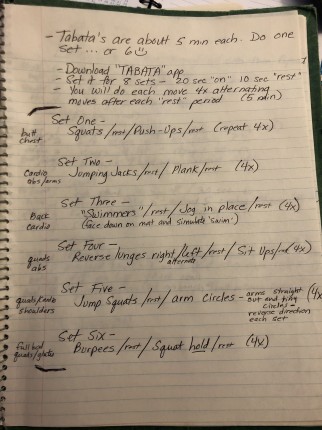 - Tabata's are about 5 min each. Do one
set ... or 6
- Download "TABATA" app
- Set it for 8 sets - 20 sec "on" 10 sec "rest"
- You will do each move 4x alternating
moves after each "rest" period (5 min)
Set One -
butt
chest
Squats /rest/ Push-Ups /rest (repeat 4x)
Set Two -
Cardio
abs/arms
Jumping Jacks /rest/ Plank /rest/ (4x)
Set Three -
Back
cardio
"Swimmers" /rest/ Jog in place /rest (4x)
(face down on mat and simulate 'swim')
Set Four -
quads
abs
Reverse lunges right/left /rest/ Sit Ups /rest (4x)
alternate
Set Five -
quads/cardio
shoulders
Jump Squats /rest/ arm circles - arms straight (4x)
out and tiny
circles -
reverse direction
each set
Set Six -
full bod
quads/glutes
Burpees /rest/ Squat hold /rest (4x)